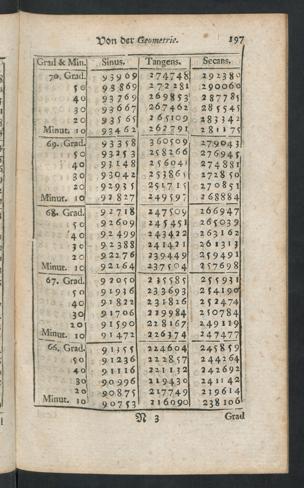 Von der Geometrie. 197
Grad & Min. Sinus. Tangens. Secans.
70. Grad. 93909 274748 292380
50 93869 272281 290060
40 93769 269853 287785
30 93667 267462 285545
20 93565 265109 283342
Minut. 10 93462 262791 281175
69. Grad. 93358 360509 279043
50 93253 258266 276945
40 93148 256041 274881
30 93042 253865 272850
20 92935 251715 270851
Minut. 10 92827 249597 268884
68. Grad. 92718 247509 266947
50 92609 245451 265039
40 92499 243422 263162
30 92388 241421 261313
20 92276 239449 259491
Minut. 10 92164 237504 257698
67. Grad. 92050 235585 255931
50 91936 233693 254190
40 91822 231826 252474
30 91706 229984 250784
20 91590 228167 249119
Minut. 10 91472 226374 247477
66. Grad. 91355 224604 245859
50 91236 222857 244264
40 91116 221132 242692
30 90996 219430 241142
20 90875 217749 239614
Minut. 10 90753 216090 238106
N 3 Grad